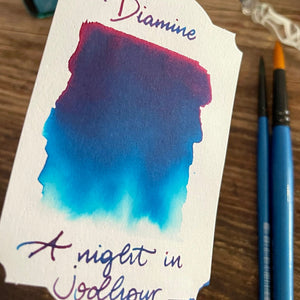 Diamine
A night in
Jodhpur